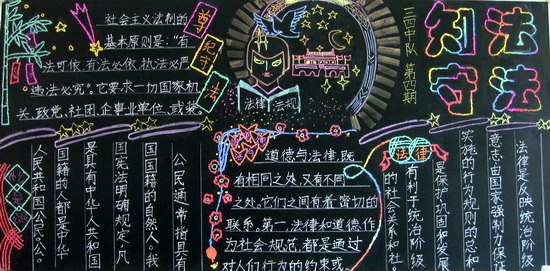 社会主义法制的
基本原则是:"有
法可依,有法必依,执法必严,
违法必究"。它要求一切国家机
关、政党、社团、企事业单位、或某
纪
守
法
法律 法规
三四中队 第四期
法律
法律是反映统治阶级
意志,由国家强制力保证
实施的行为规则的总和
是保护巩固和发展
有利于统治阶级
的社会关系和社
道德与法律,既
有相同之处,又有不同
之处,它们之间有着密切的
联系。第一,法律和道德作
为社会规范,都是通过
对人们行为的约束或
公民通常指具有
国国籍的自然人。我
国宪法明确规定:凡
是具有中华人共和国
国籍的人都是中华
人民共和国公民。人。